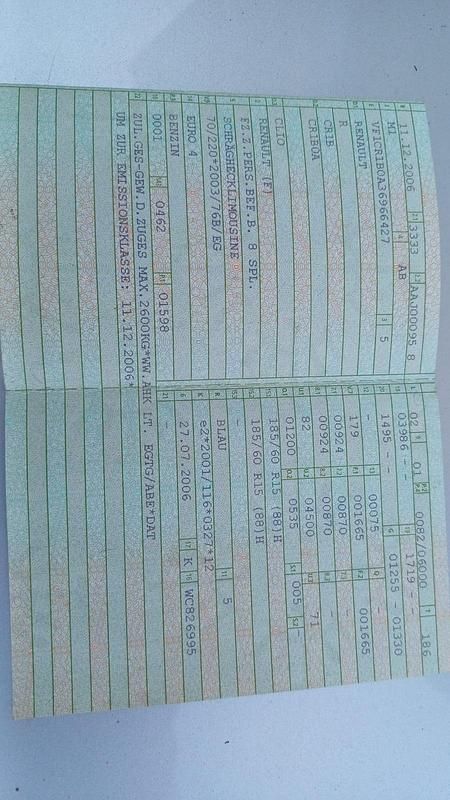 11.12.2006 3333 AAJ00095 8
M1 AB
VF1CR1B0A36966427 5
RENAULT
R
CR1B
CR1B0A
CLIO
RENAULT (F)
FZ.Z.PERS.BEF.B. 8 SPL.
SCHRÄGHECKLIMOUSINE
70/220*2003/76B/EG
EURO 4
BENZIN
0001 0462 01598
ZUL.GES-GEW.D.ZUGES MAX.2600KG*WW.AHK LT. EGTG/ABE*DAT
UM ZUR EMISSIONSKLASSE: 11.12.2006*
02 01 0082/06000 186
03986 - - 1719 - -
1495 - - 01255 - 01330
- 00075 -
179 001665 001665
00924 00870 -
00924 00870 -
82 04500 71
01200 0535 005 -
185/60 R15 (88)H
185/60 R15 (88)H
-
BLAU 5
e2*2001/116*0327*12
27.07.2006 K WC826995
-